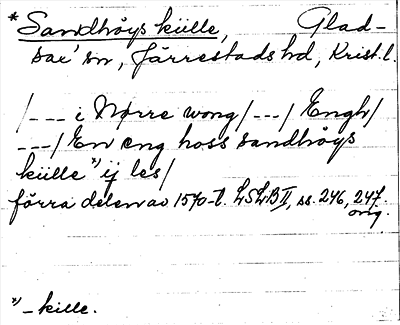 * Sandhöys külle, Glad-
sax' sn, Järrestads hd, Krist. l.
/--- i Nørre wong/---/ Engh/
---/ En eng hoss sandhöys
külle *) ij les/
förra delen av 1570-t. LSLB II, ss. 246, 247.
orig.
*) -kille.